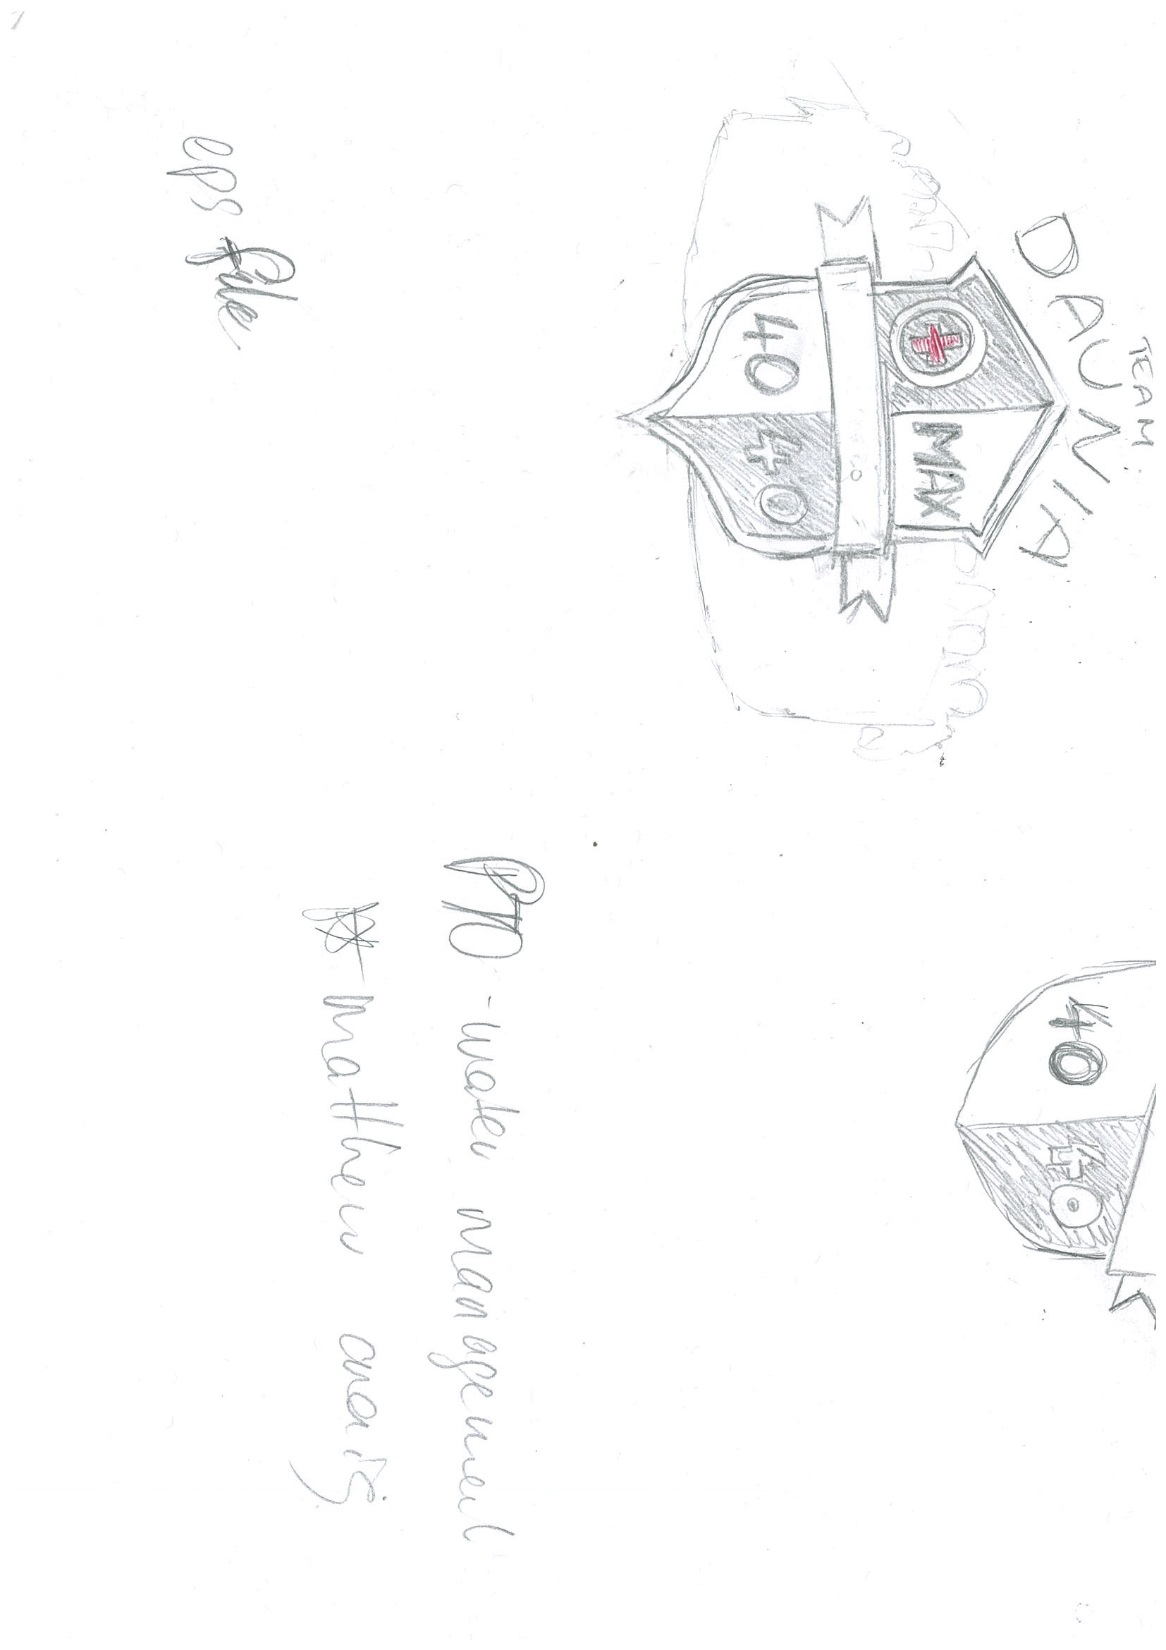 TEAM
DAUNIA
MAX
40 40
40 40
eps file
PTO - water management
matthew anais